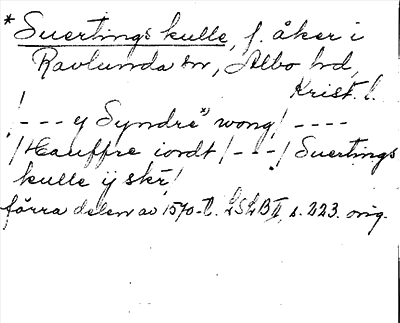 * Suertings kulle, f. åker i
Ravlunda sn, Albo hd,
Krist. l.
/--- y Syndre *) wong/ ----
/Hauffre iordt/---/ Suertings
kulle ij skr/
förra delen av 1570-t. LSLB II, s. 223. orig.